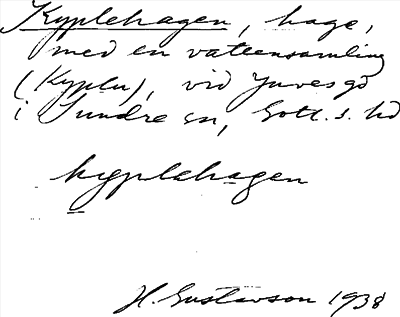 Kyplehagen, hage,
med en vattensamling
(Kyplu), vid Juvesgd
i Sundre sn, Gotl. s. hd
kyplehagen
H. Gustavson 1938